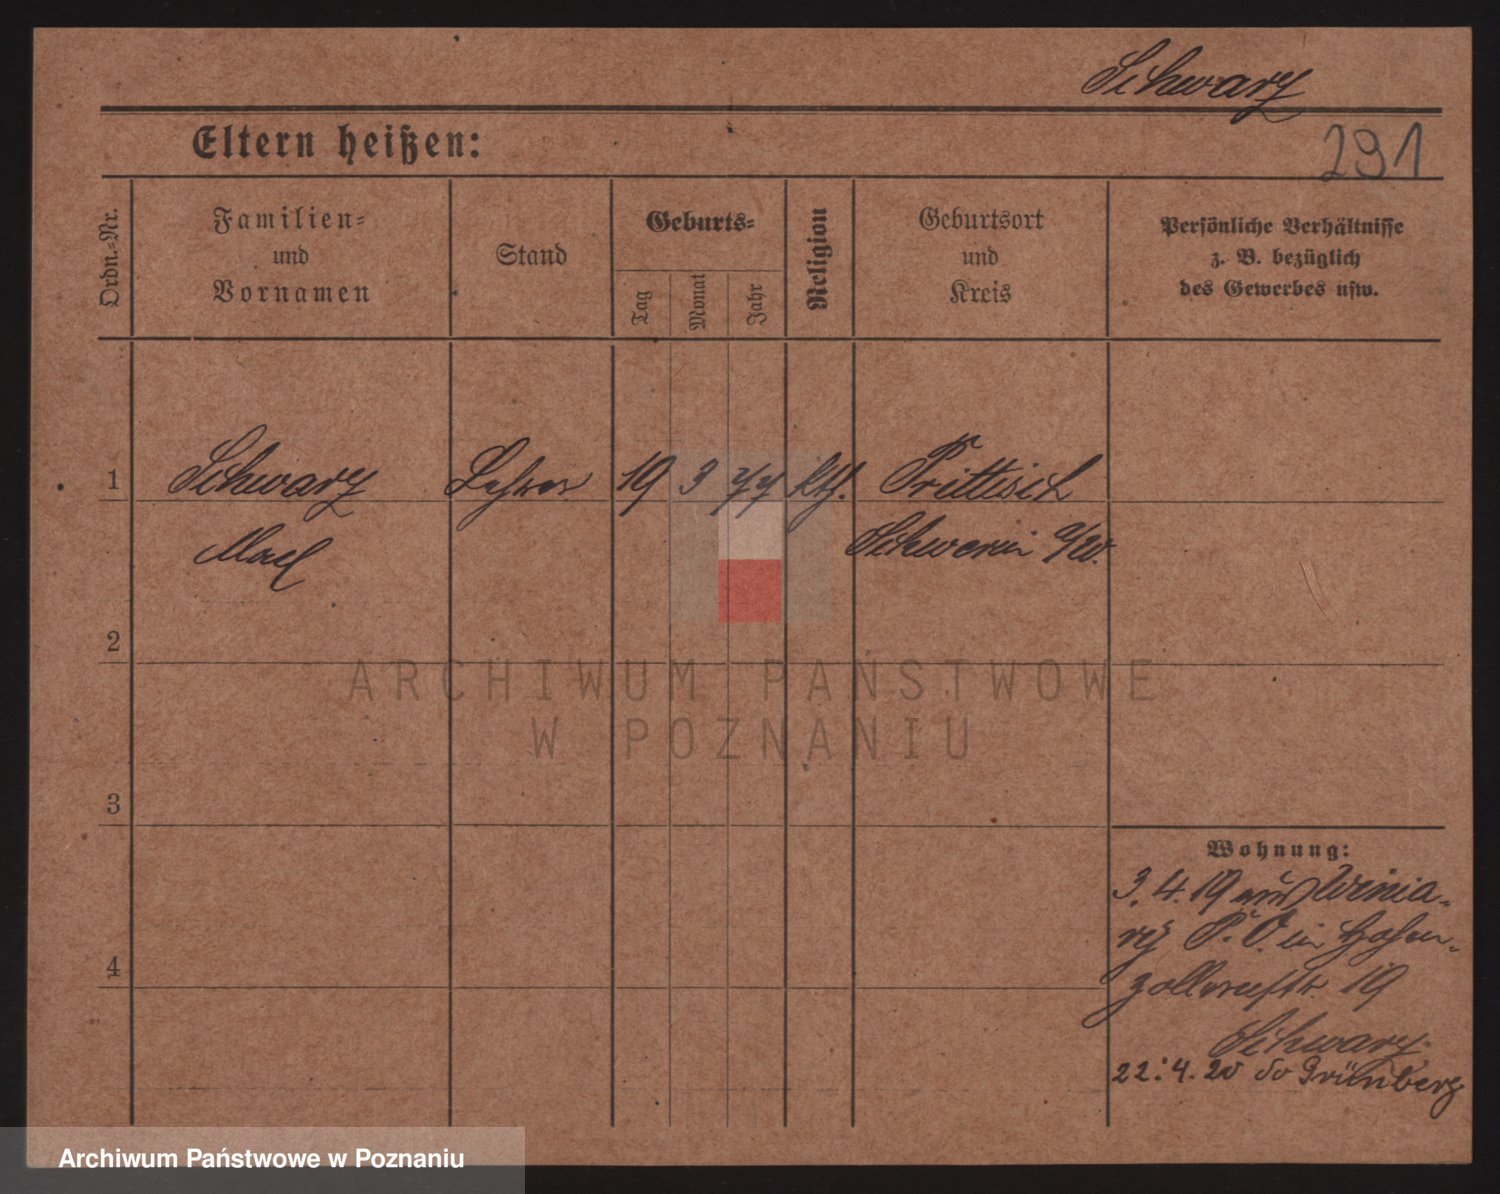 Schwarz
Eltern heißen:
291
Ordn.-Nr.
Familien-
und
Vornamen
Stand
Geburts-
Tag
Monat
Jahr
Religion
Geburtsort
und
Kreis
Persönliche Verhältnisse
z. B. bezüglich
des Gewerbes usw.
1
Schwarz
Lehrer
19 3
kth.
Prittisch
Schwerin a/W.
2
ARCHIWUM PAŃSTWOWE
W POZNANIU
3
Wohnung:
3.4.19 aus Winia-
ry P. O. in Hohen-
zollernstr. 19
4
Schwarz
22.4.20 do Grünberg
Archiwum Państwowe w Poznaniu